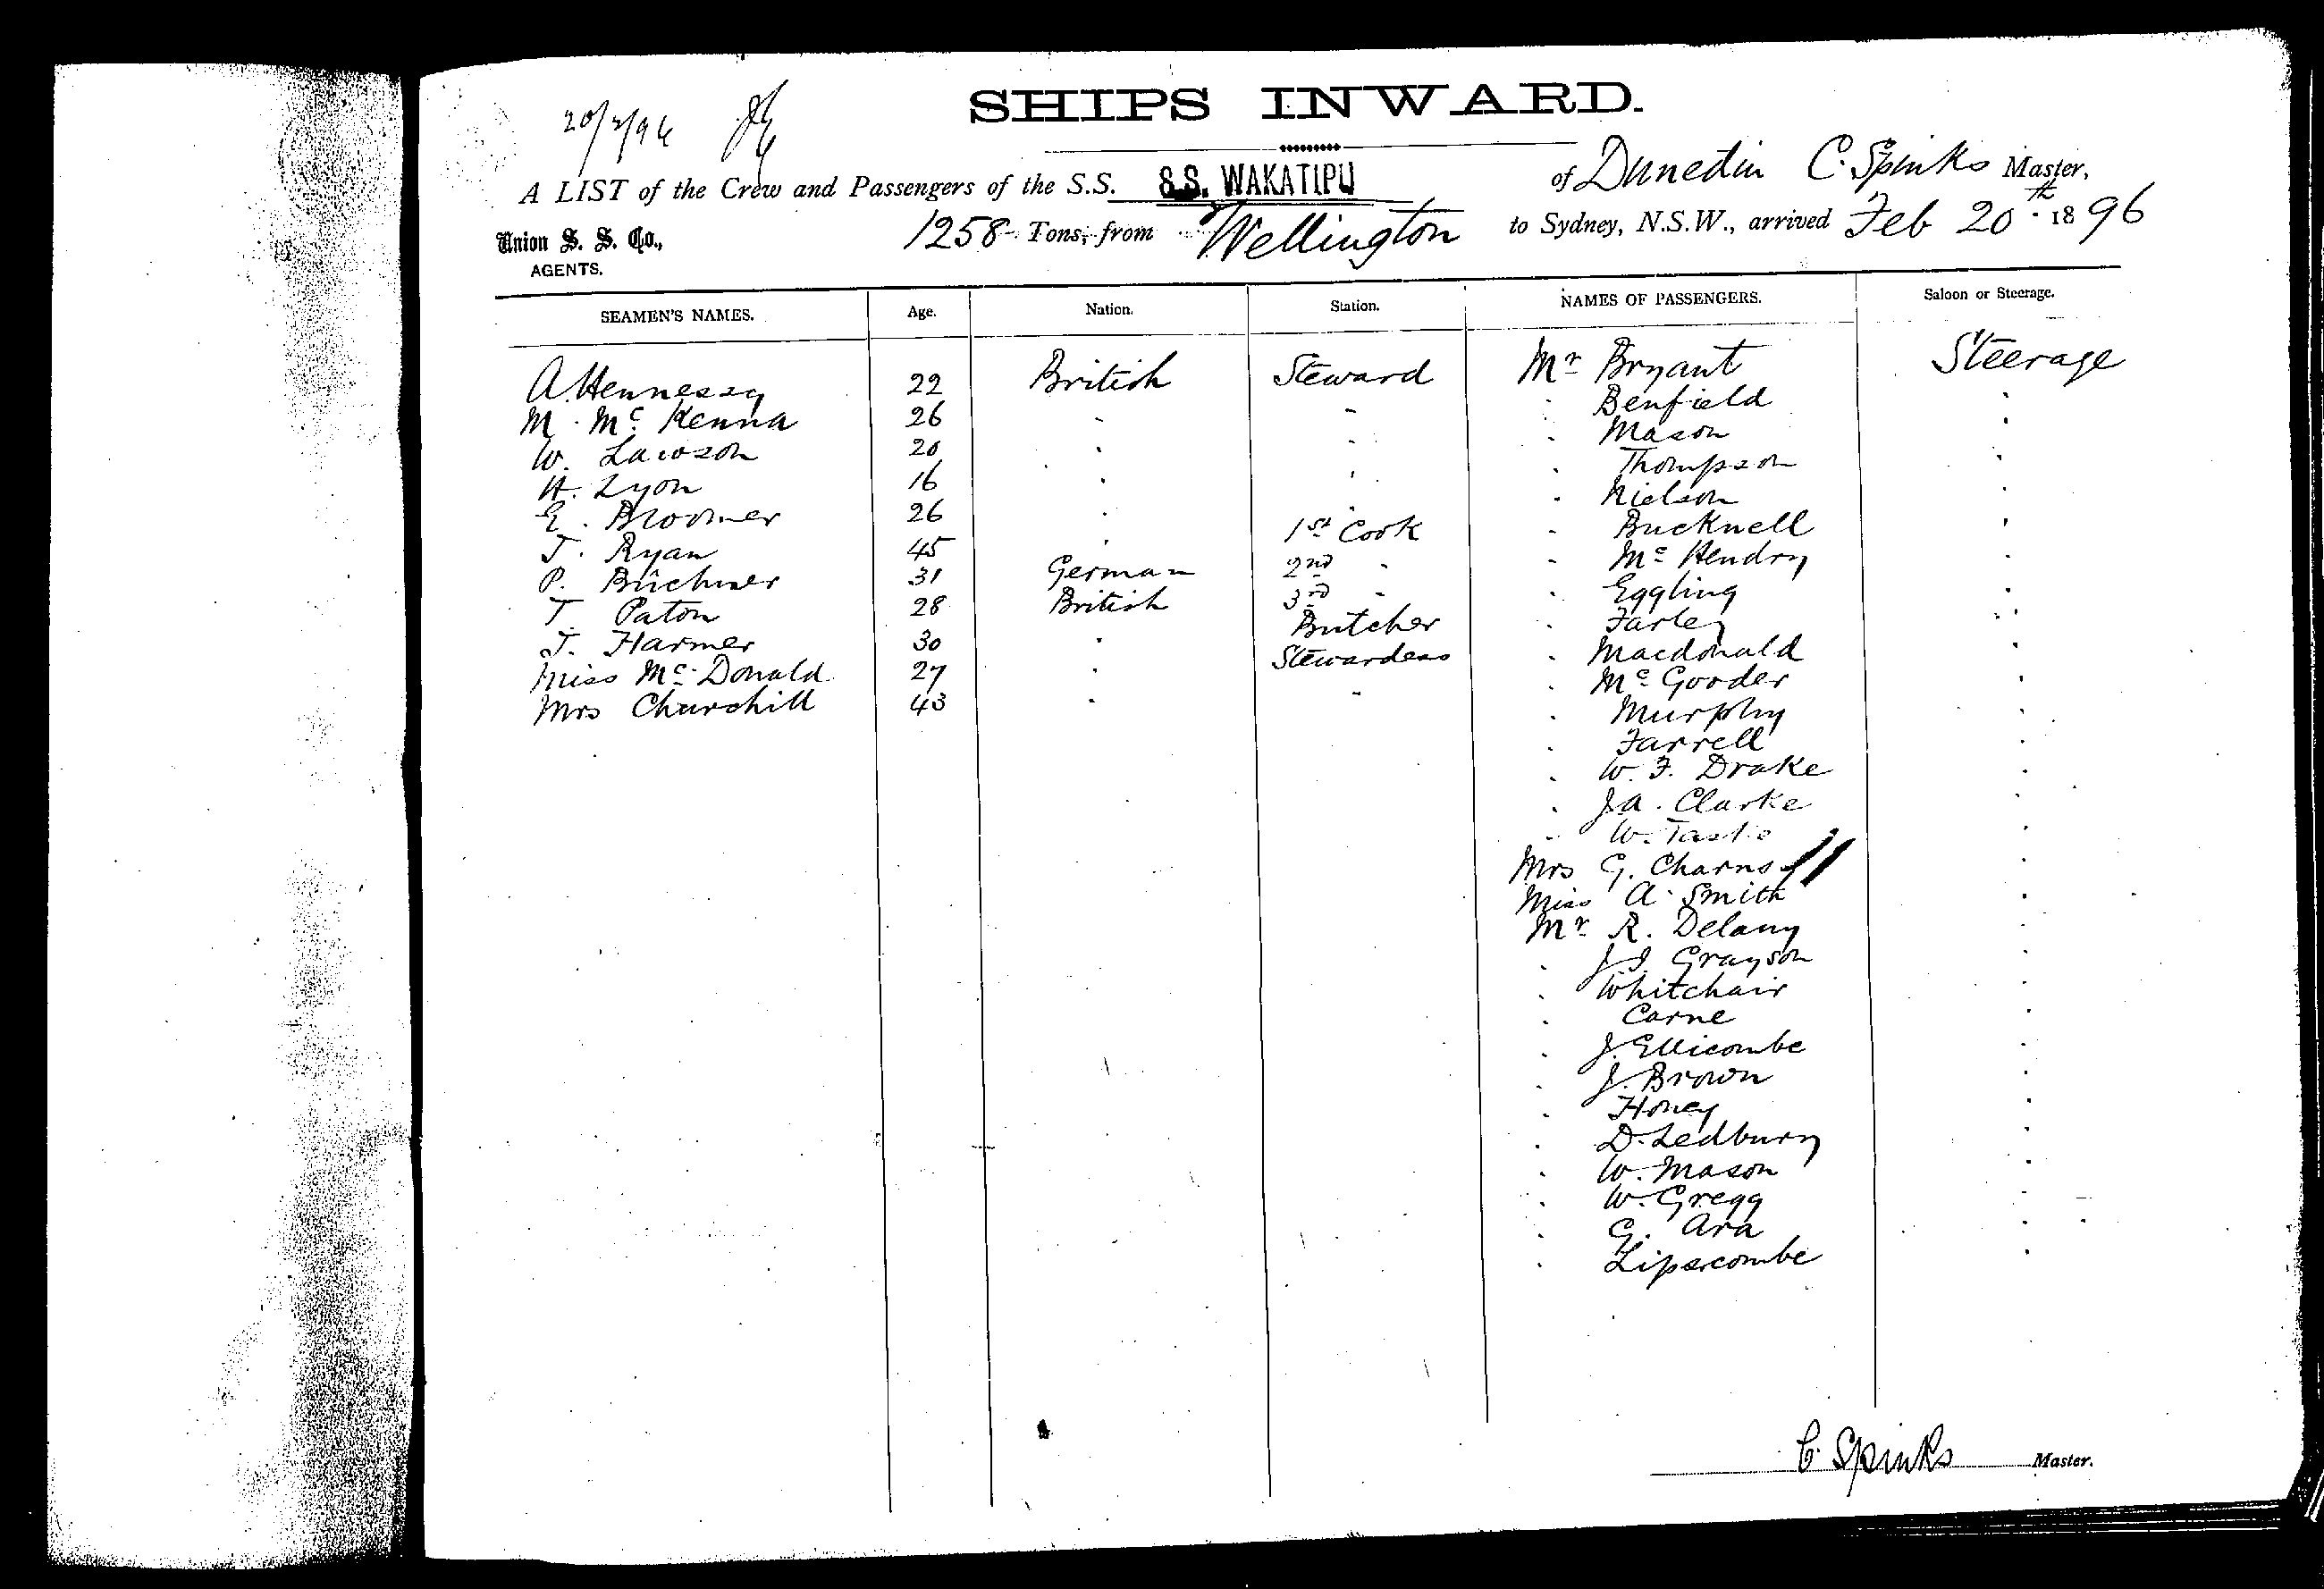 SHIPS INWARD.
20/2/96
A LIST of the Crew and Passengers of the S.S. S.S. WAKATIPU of Dunedin C. Spinks Master,
Union S. S. Co., 1258 Tons, from Wellington to Sydney, N.S.W., arrived Feb 20th 1896
AGENTS.
SEAMEN'S NAMES. Age. Nation. Station. NAMES OF PASSENGERS. Saloon or Steerage.
A. Hennessy 22 British Steward Mr Bryant Steerage
M. Mc Kenna 26 - - . Benfield .
W. Lawson 20 . - . Mason .
H. Lyon 16 . . . Thompson .
E. Broomer 26 . . - Nielson .
J. Ryan 45 . 1st Cook - Bucknell .
P. Büchner 31 German 2nd - - Mc Hendry .
T. Paton 28 British 3rd - . Eggling .
J. Harmer 30 . Butcher . Farley .
Miss Mc Donald 27 . Stewardess . Macdonald .
Mrs Churchill 43 . - . Mc Gooder .
. Murphy .
. Farrell .
. W. F. Drake .
. J.A. Clarke .
. W. .
Mrs G. .
Miss A. Smith .
Mr R. Delany .
. J.J. Grayson .
. Whitchair .
. Carne .
. J. Ellicombe .
. J. Brown .
. Honey .
. D. Ledbury .
. W. Mason .
. W. Gregg .
. G. Ara .
. Lipscombe .
C. Spinks Master.